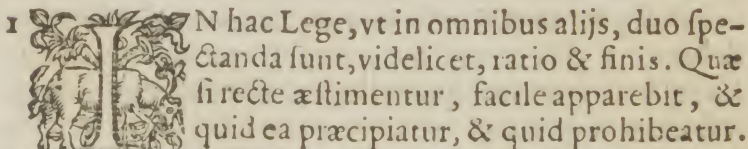 1 IN hac Lege, vt in omnibus alijs, duo ſpe-
ctanda ſunt, videlicet, ratio & finis. Quæ
ſi recte æſtimentur, facile apparebit, &
quid ea præcipiatur, & quid prohibeatur.